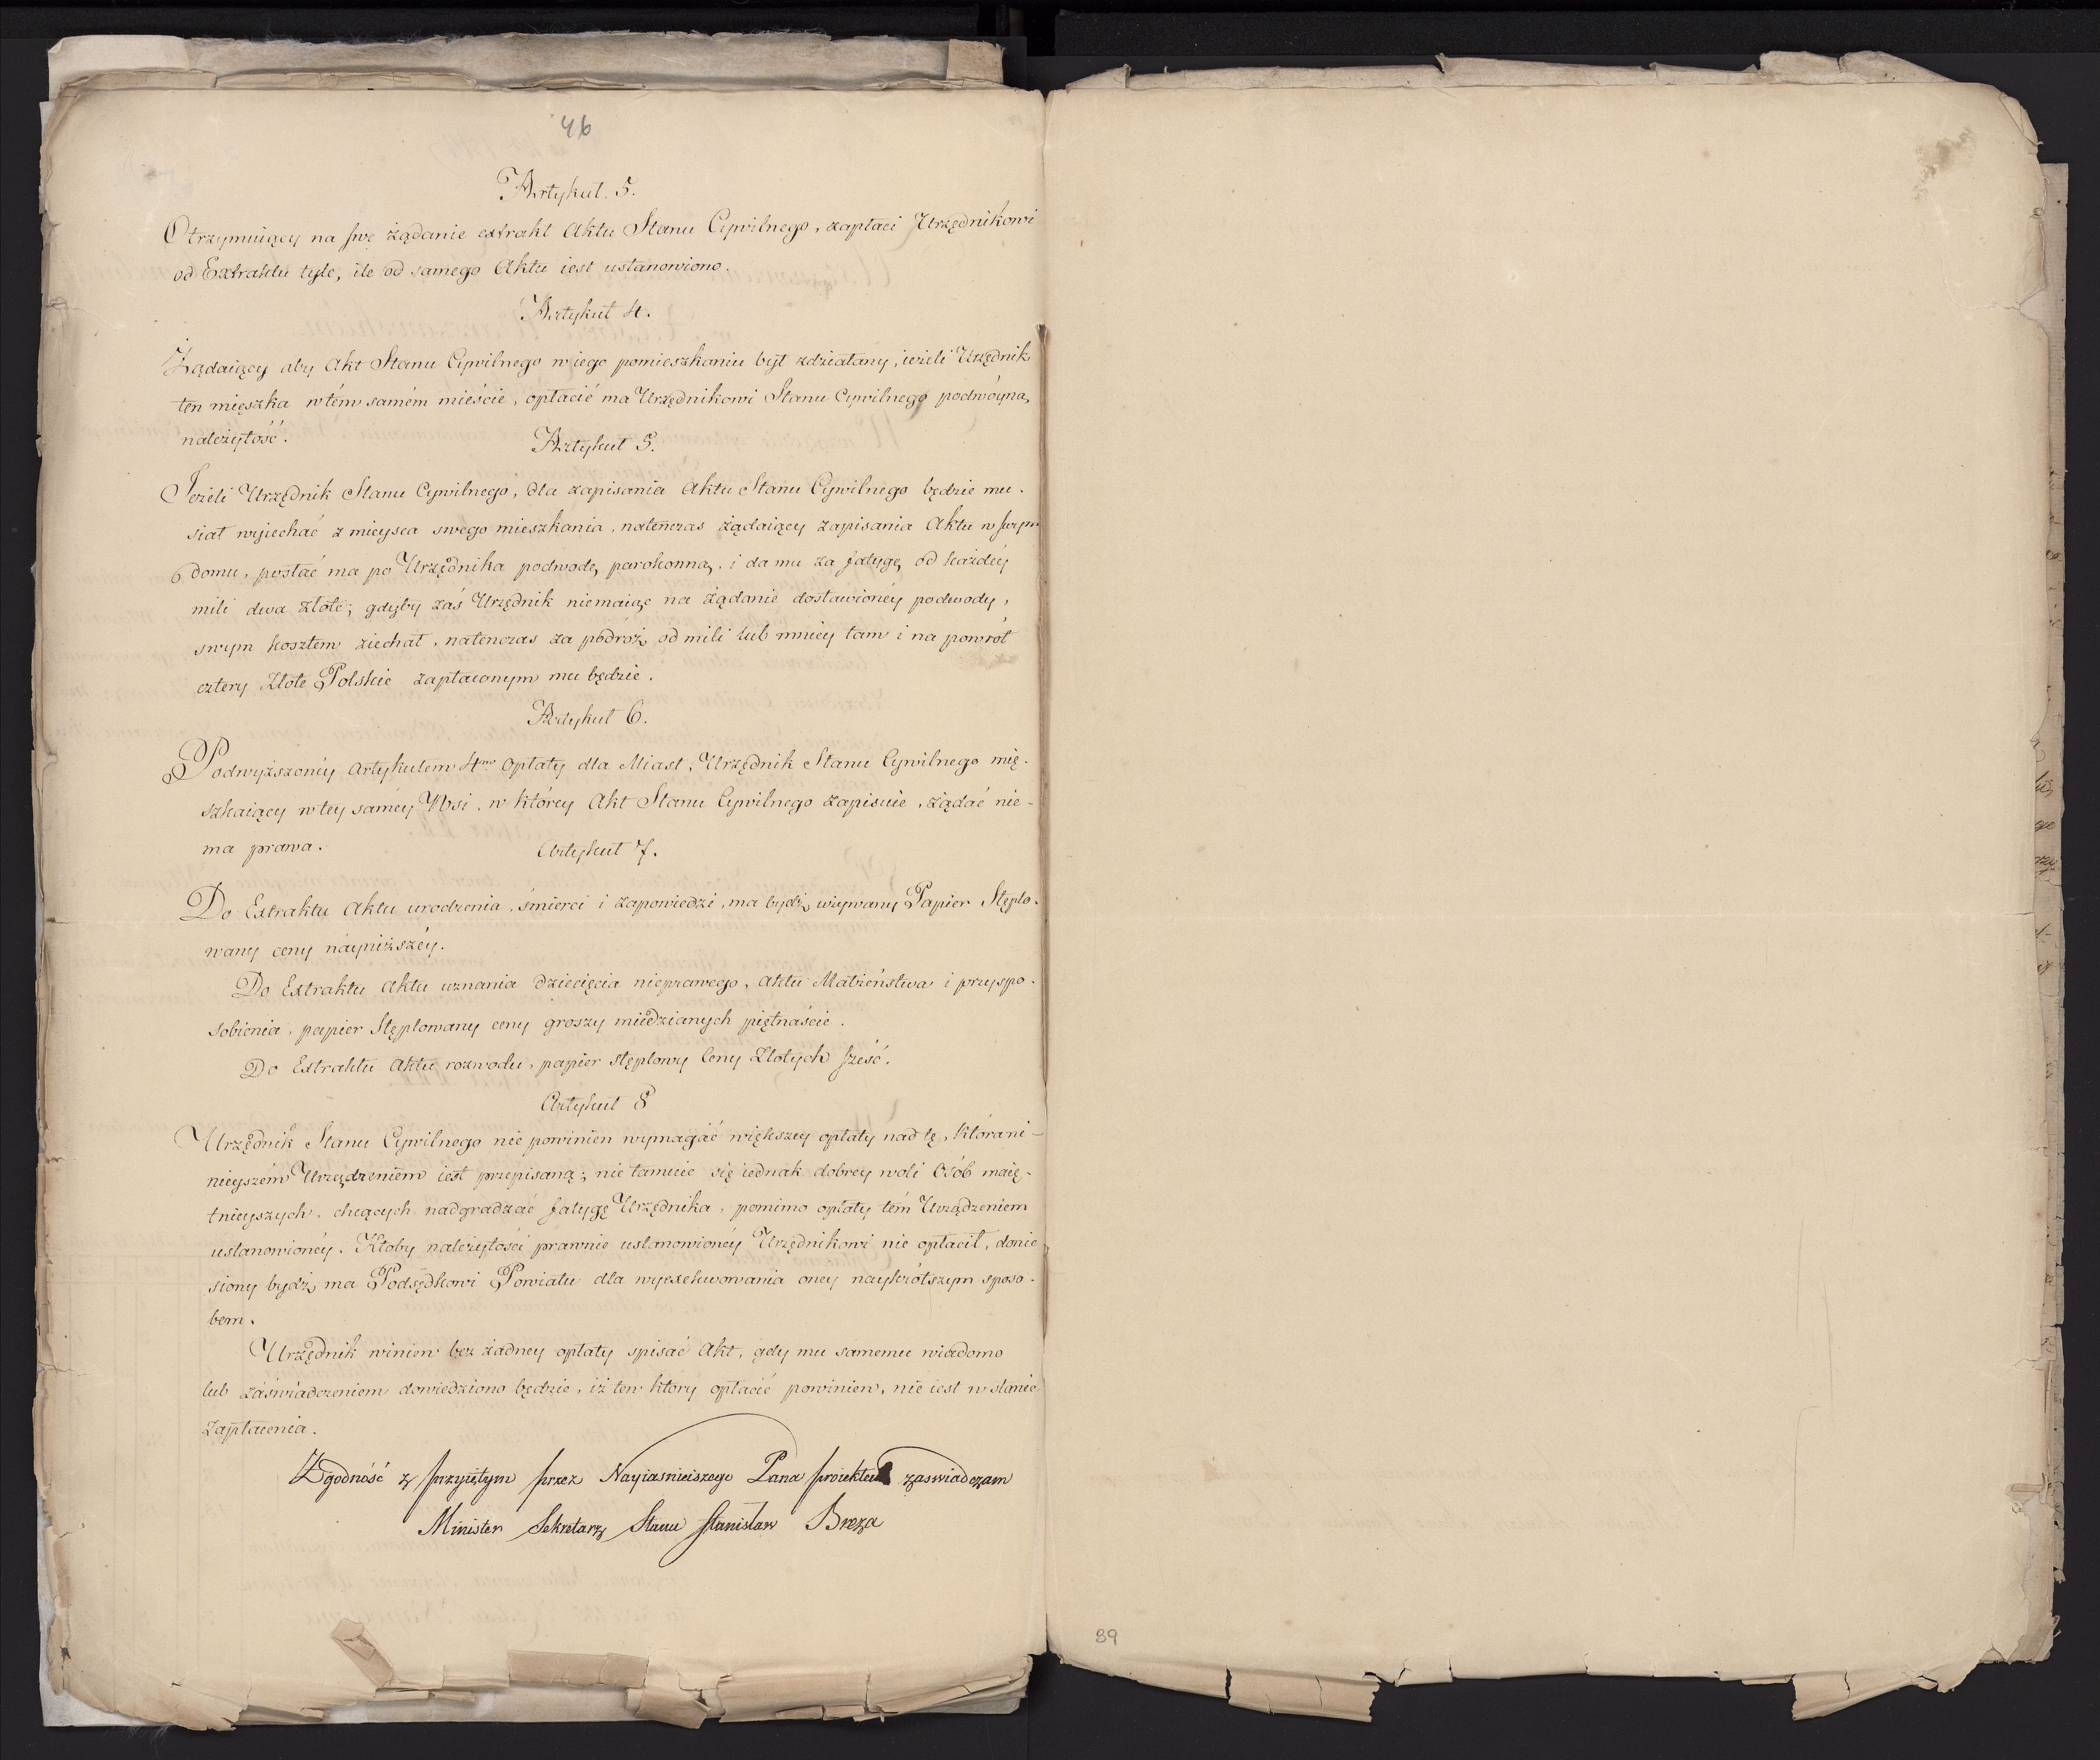 46
Artykuł. 3.
Otrzymuiący na swe żądanie extrakt Aktu Stanu Cywilnego, zapłaci Urzędnikowi
od Extraktu tyle, ile od samego Aktu iest ustanowiono.
Artykuł 4.
Żądaiący aby Akt Stanu Cywilnego w iego pomieszkaniu był zdziałany, ieżeli Urzędnik
ten mięszka w tém samém mieście, opłacić ma Urzędnikowi Stanu Cywilnego podwóyną
należytość.
Artykuł 5.
Jeżeli Urzędnik Stanu Cywilnego, dla zapisania Aktu Stanu Cywilnego będzie mu-
siał wyiechać z mieysca swego mieszkania, natenczas żądaiący zapisania Aktu w swym
domu, posłać ma po Urzędnika podwodę parokonną, i da mu za fatygę od każdéy
mili dwa złote; gdyby zaś Urzędnik niemaiąc na żądanie dostawionéy podwody,
swym kosztem ziechał, natenczas za podróż od mili lub mniey tam i na powrót
cztery Złote Polskie zapłaconym mu będzie.
Artykuł 6.
Podwyższonéy Artykułem 4mo Opłaty dla Miast, Urzędnik Stanu Cywilnego mię-
szkaiący w tey saméy Wsi, w którey Akt Stanu Cywilnego zapisuie, żądać nie-
ma prawa.
Artykuł 7.
Do Extraktu Aktu urodzenia, śmierci i zapowiedzi, ma bydź używany Papier Stęplo-
wany ceny náyniższéy.
Do Extraktu Aktu uznania dziecięcia nieprawego, Aktu Małżeństwa i przyspo-
sobienia, papier Stęplowany ceny groszy miedzianych piętnaście.
Do Extraktu Aktu rozwodu, papier stęplowy Ceny Złotych sześć.
Artykuł 8
Urzędnik Stanu Cywilnego nie powinien wymagać większey opłaty nad tę, która ni-
nieyszém Urządzeniem iest przepisaną; nie tamuie się iednak dobrey woli Osób maię-
tnieyszych, chcących nadgradzać fatygę Urzędnika, pomimo opłaty tém Urządzeniem
ustanowionéy. Ktoby należytości prawnie ustanowionéy Urzędnikowi nie opłacił, donie
siony bydź ma Podsędkowi Powiatu dla wyexekwowania oney naykrótszym sposo-
bem.
Urzędnik winien bez żadney opłaty spisać Akt, gdy mu samemu wiadomo
lub zaświadczeniem dowiedziono będzie, iż ten ktory opłacić powinien, nie iest w stanie
Zapłacenia.
Zgodność z przyiętym przez Nayiasnieiszego Pana proiektem zaswiadczam
Minister Sekretarz Stanu Stanisław Breza
39